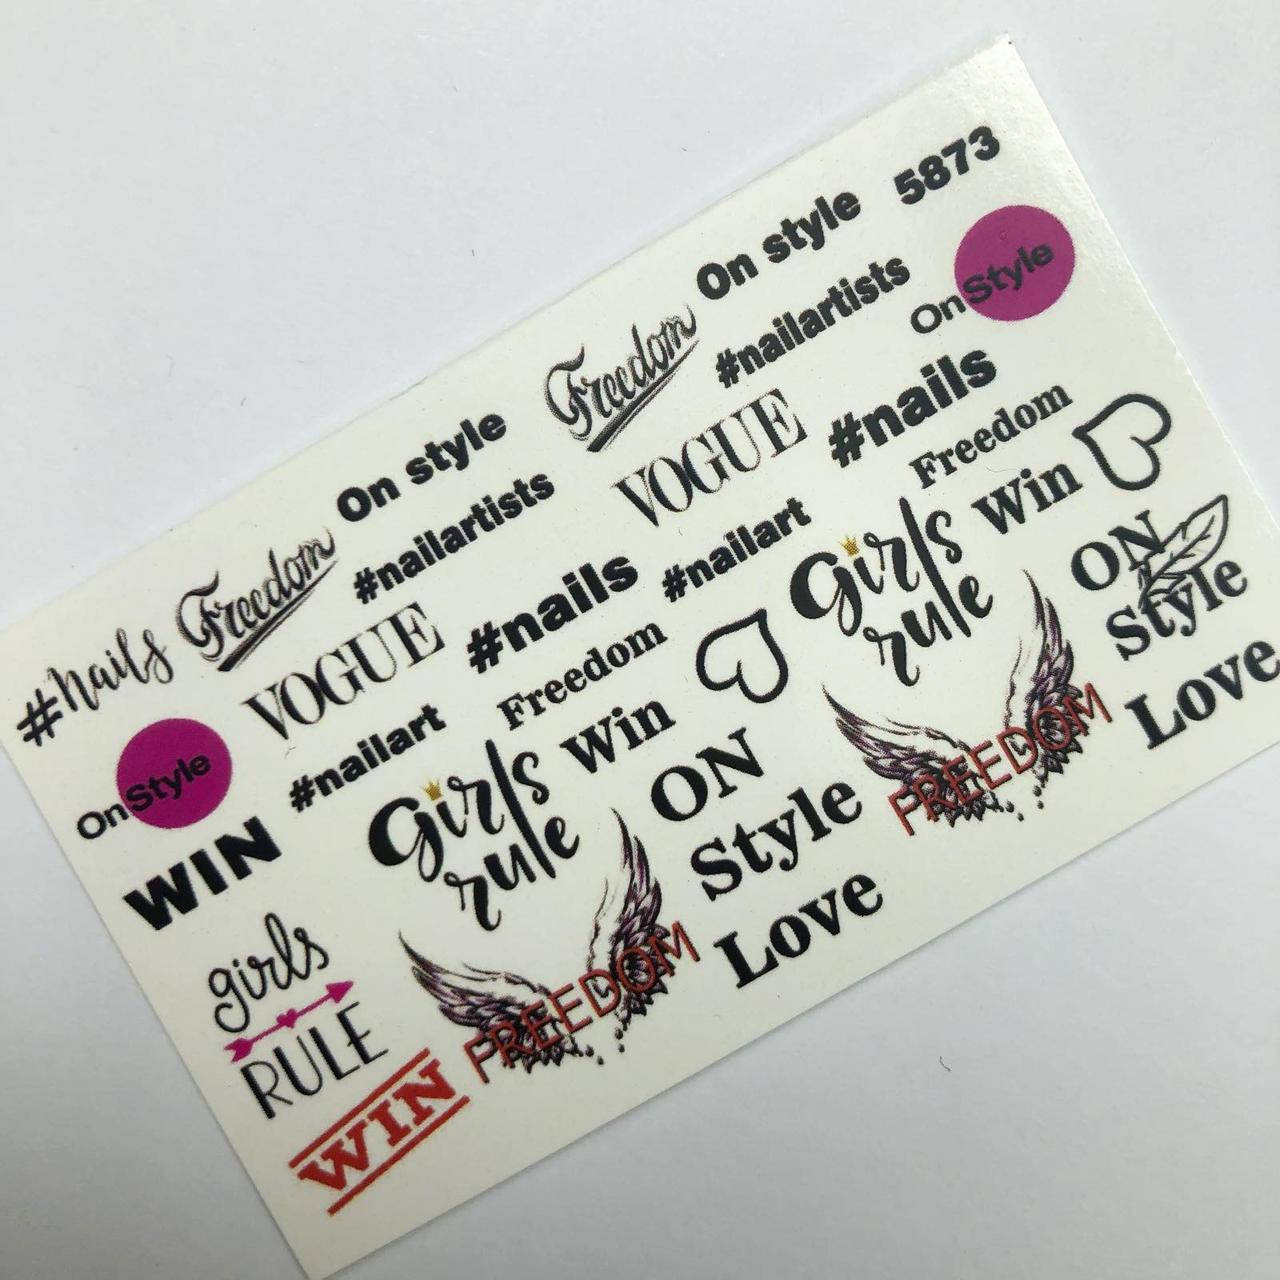 5873
On style
Freedom
#nailartists
On Style
On style
Freedom
#nailartists
VOGUE
#nails
Freedom
#nails
VOGUE
#nails
#nailart
Girls
rule
Win
ON
Style
Love
On Style
#nailart
Freedom
Win
FREEDOM
WIN
Girls
rule
ON
Style
Love
girls
RULE
FREEDOM
WIN